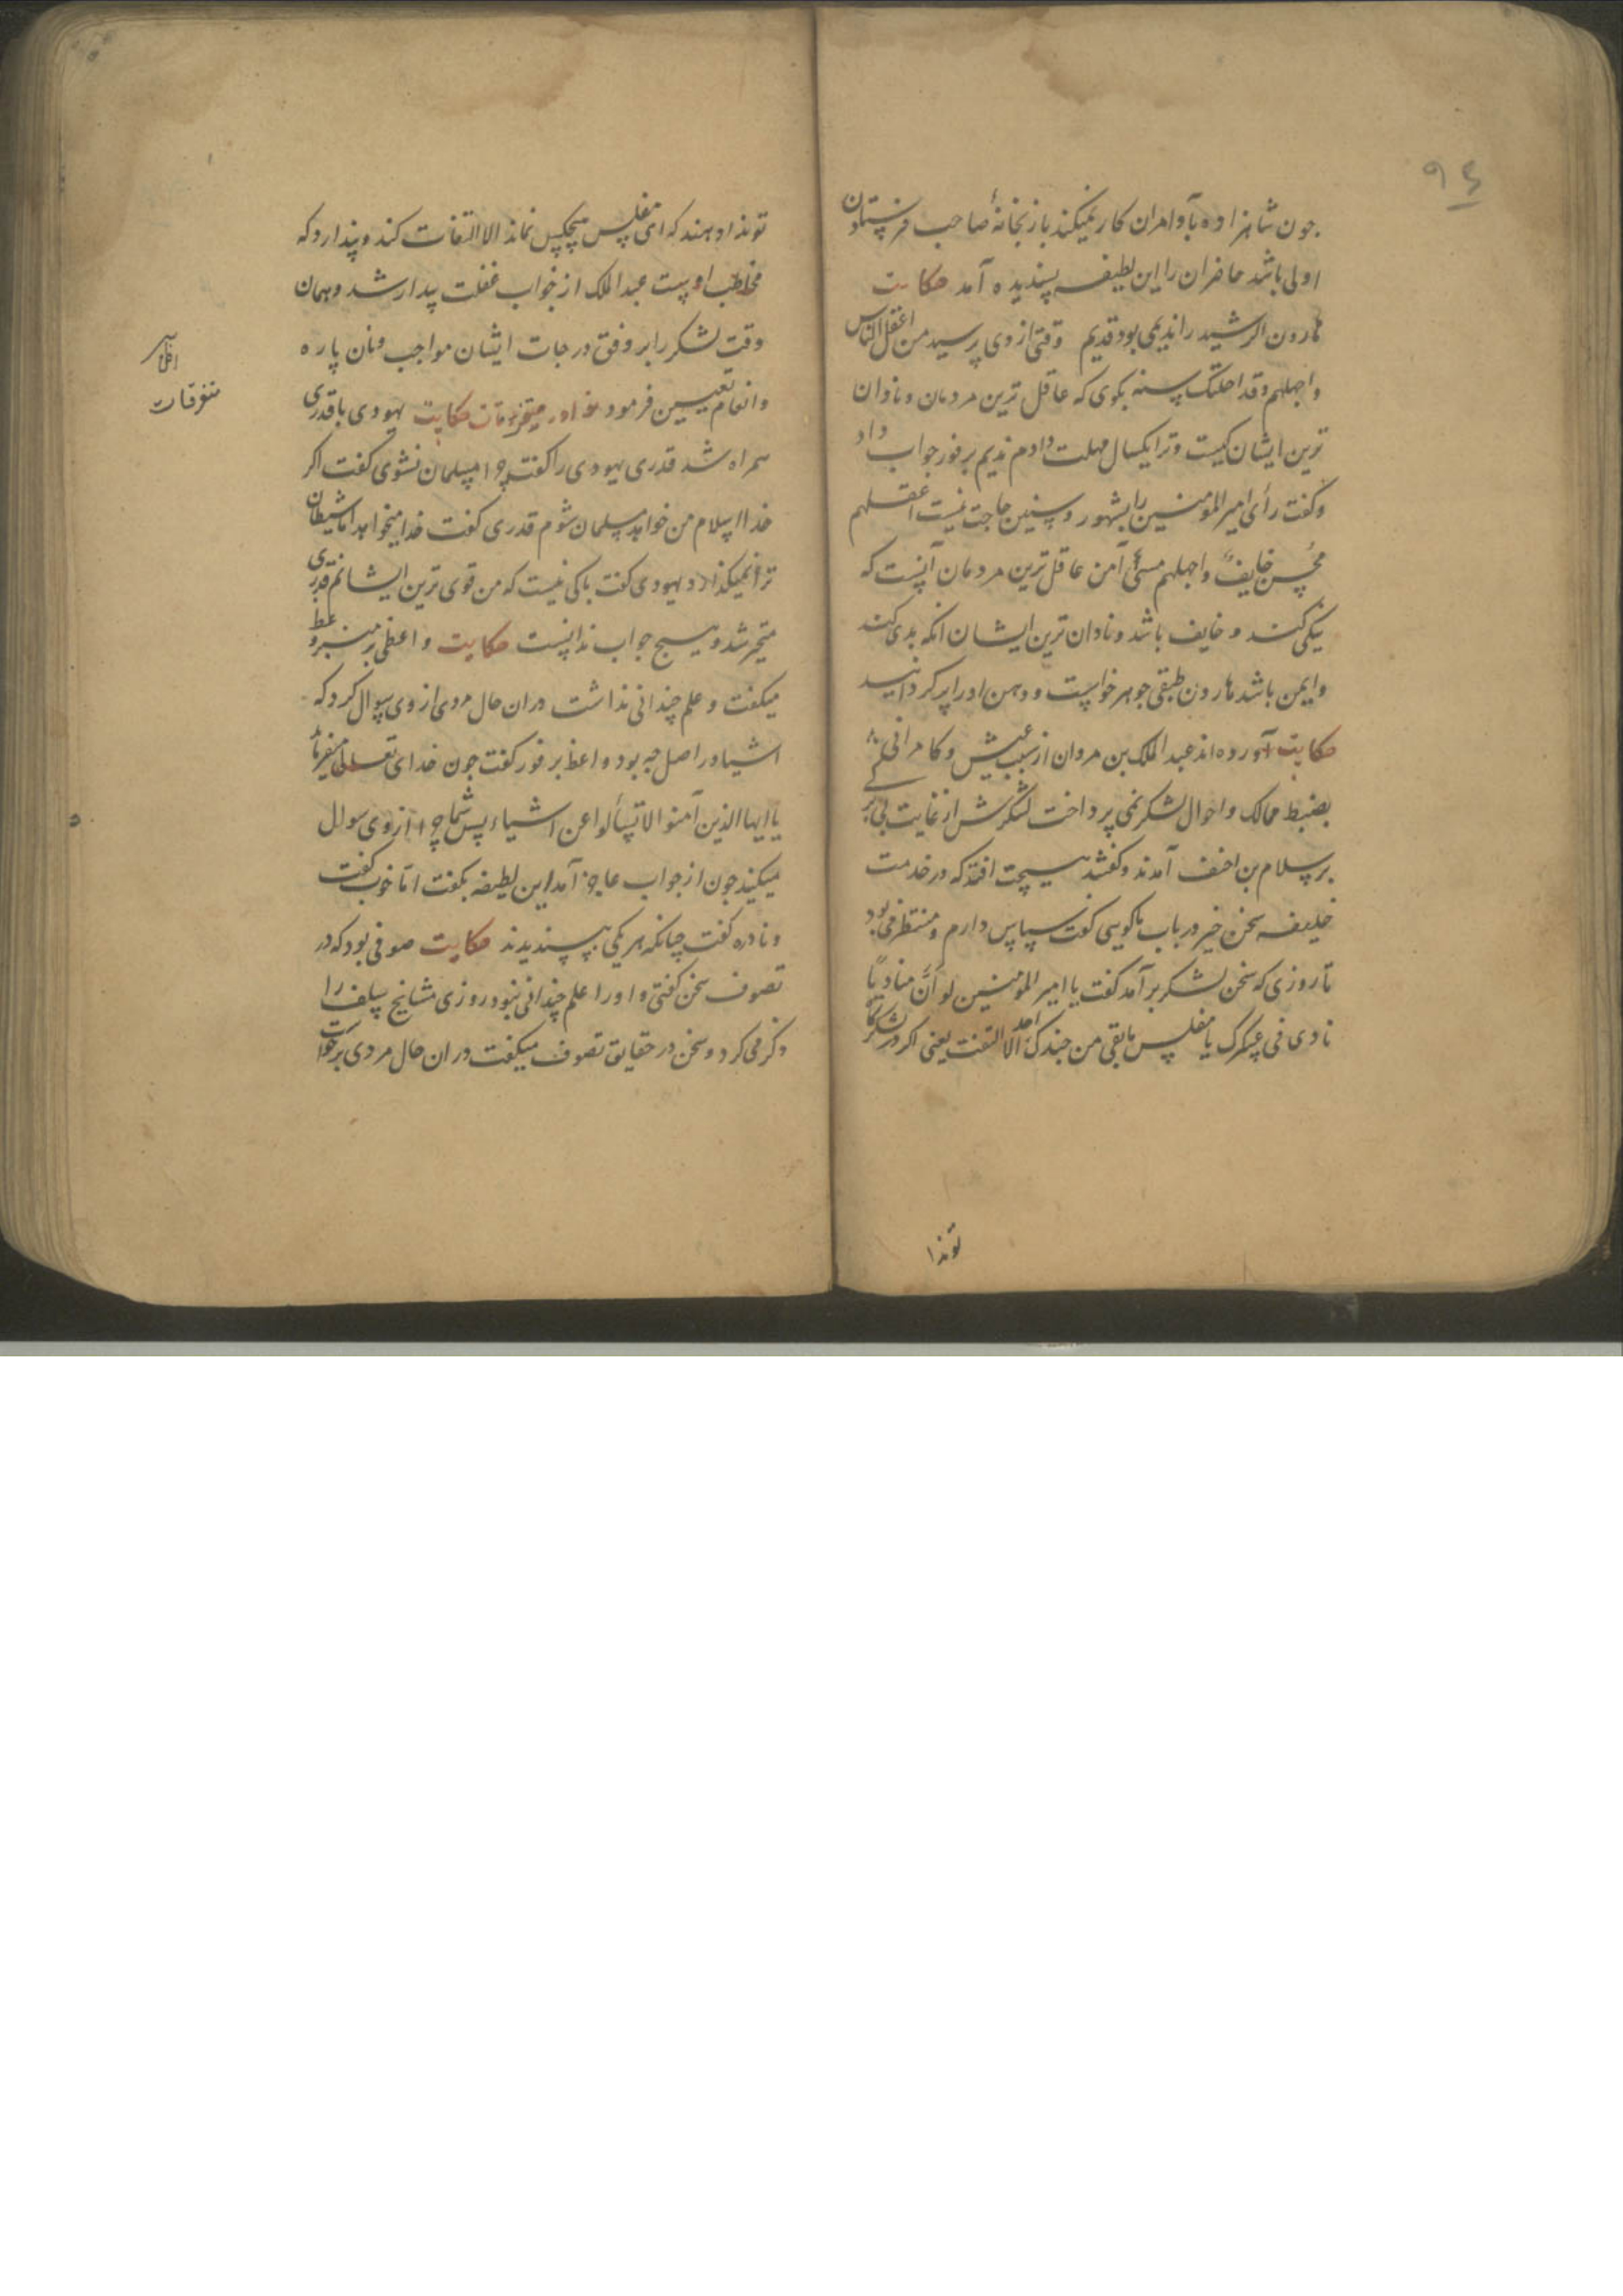 ۹۴
جون شاهزاده بآوامران کار نمیکند باز بخانهٔ صاحب فرستادن
اولی باشد حاضران را این لطیفه پسندیده آمد حکایت
هارون الرشید را ندیمی بود قدیم وقتی ازوی پرسید من اعقل الناس
واجهلهم وقد اجلتک سنه بکوی که عاقل ترین مردمان و نادان
ترین ایشان کیست وترا یکسال مهلت دادم ندیم برفور جواب داد
وکفت رأی امیر المومنین را بشهور وسنین حاجت نیست اعقلهم
محسن خایف واجهلهم مسئ آمن عاقل ترین مردمان آنست که
نیکی کند و خایف باشد و نادان ترین ایشان انکه بدی کند
وایمن باشد هارون طبقی جوهر خواست و دهن اورا پر کردانید
حکایت آورده اند عبد الملک بن مروان از سبب عیش وکامرانی
بضبط ممالک واحوال لشکر نمی پرداخت لشکرش از غایت بی برکی
بر سلام بن احنف آمدند وکفتند هیچت افتد که در خدمت
خلیفه سخن خیر در باب ما کویی کفت سپاس دارم و منتظر می بود
تا روزی که سخن لشکر بر آمد کفت یا امیر المومنین لو ان منادیا
نادی فی عسکرک یا مفلس مابقی من جندک احد الا التفت یعنی اکر در لشکرکاه
توندا
توندا دهند که ای مفلس هیچکس نماند الا التفات کند وپندارد که
مخاطب اوست عبد الملک از خواب غفلت بیدار شد وهمان
وقت لشکر را بر وفق درجات ایشان مواجب ونان پاره
وانعام تعیین فرمود نوادر متفرقات حکایت یهودی با قدری
متفرقات
همراه شد قدری یهودی را کفت چرا مسلمان نشوی کفت اکر
خدا اسلام من خواهد مسلمان شوم قدری کفت خدا میخواهد اما شیطان
ترا نمیکذارد یهودی کفت باکی نیست که من قوی ترین ایشانم قدری
متحیر شد وهیچ جواب ندانست حکایت واعظی بر منبر وعظ
میکفت وعلم چندانی نداشت دران حال مردی ازوی سوال کرد که
اشیا در اصل چه بود واعظ بر فور کفت جون خدای تعالی میفرماید
یا ایها الذین آمنوا لا تسألوا عن اشیاء پس شما چرا ازوی سوال
میکنید جون از جواب عاجز آمد این لطیفه بکفت اما خوب کفت
ونادره کفت چنانکه هر یکی بپسندیدند حکایت صوفی بود که در
تصوف سخن کفتی واورا علم چندانی نبود روزی مشایخ سلف را
ذکر می کرد وسخن در حقایق تصوف میکفت دران حال مردی برخواست